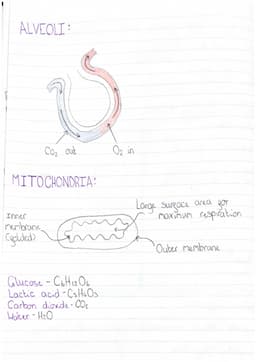 ALVEOLI:
CO₂ out
O₂ in
MITOCHONDRIA:
Large surface area for
maximum respiration
Inner
membrane
(folded)
Outer membrane
Glucose - C₆H₁₂O₆
Lactic acid - C₃H₆O₃
Carbon dioxide - CO₂
Water - H₂O